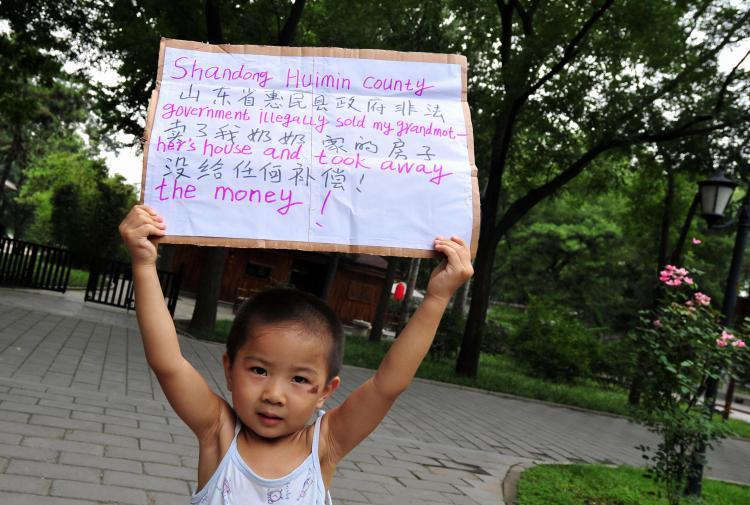 Shandong Huimin county
山东省惠民县政府非法
government illegally sold my grandmot-
卖了我奶奶家的房子
her's house and took away
没给任何补偿!
the money!